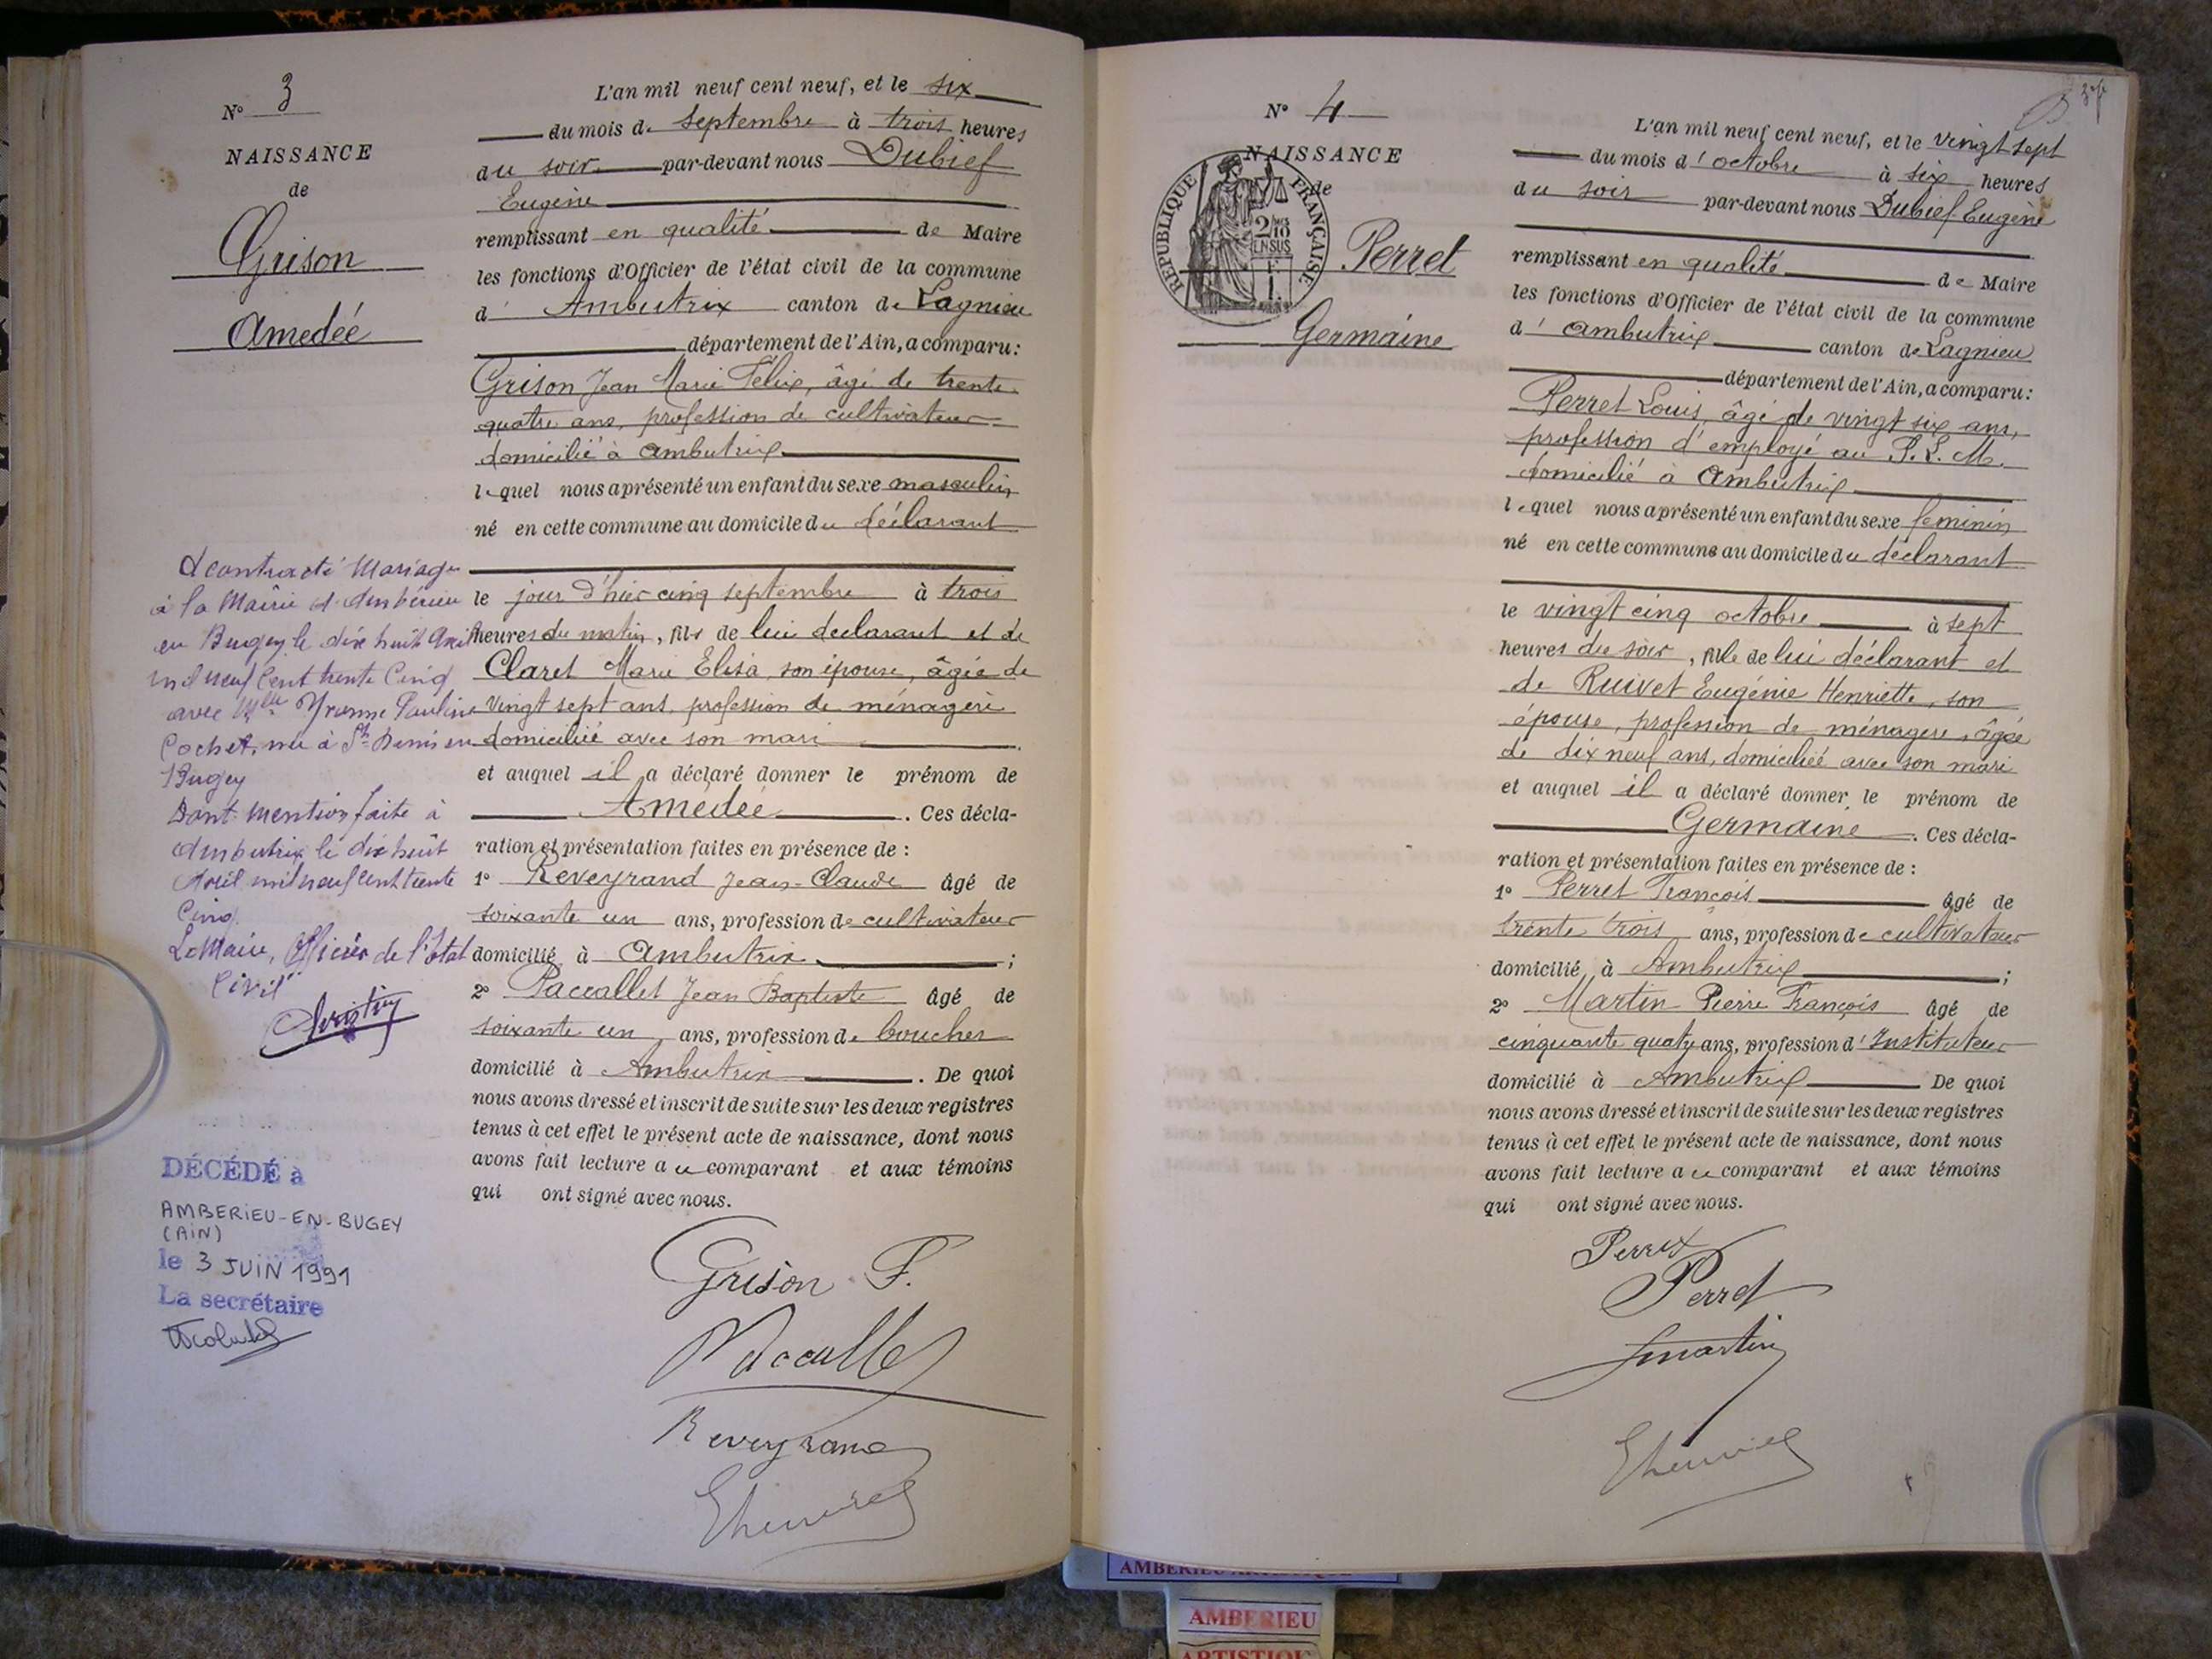 N° 3
NAISSANCE
de
Grison
Amedeé
L'an mil neuf cent neuf, et le six
du mois de Septembre à trois heures
du soir par-devant nous Dubief
Eugène
remplissant en qualité de Maire
les fonctions d'Officier de l'état civil de la commune
d' Ambutrix canton de Lagnieu
département de l'Ain, a comparu:
Grison Jean Marie Félix, âgé de trente
quatre ans, profession de cultivateur
domicilié à Ambutrix
lequel nous a présenté un enfant du sexe masculin
né en cette commune au domicile du déclarant
le jour d'hier cinq septembre à trois
heures du matin, fils de lui declarant et de
Claret Marie Elisa, son épouse, âgée de
vingt sept ans, profession de ménagère
domiciliée avec son mari
et auquel il a déclaré donner le prénom de
Amédeé. Ces décla-
ration et présentation faites en présence de :
1° Reveyrand Jean-Claude âgé de
soixante un ans, profession de cultivateur
domicilié à Ambutrix ;
2° Paccallet Jean Baptiste âgé de
soixante un ans, profession de boucher
domicilié à Ambutrix. De quoi
nous avons dressé et inscrit de suite sur les deux registres
tenus à cet effet le présent acte de naissance, dont nous
avons fait lecture au comparant et aux témoins
qui ont signé avec nous.
Grison F.
Reveyrand
A contracté Mariage
à la Mairie d'Ambérieu
en Bugey le dix huit Avril
mil neuf cent trente Cinq
avec Mlle Yvonne Pauline
Cochet, née à St Denis en
Bugey
Dont mention faite à
Ambutrix le dix huit
Avril mil neuf cent trente
Cinq.
Le Maire, Officier de l'état
Civil
DÉCÉDÉ à
AMBERIEU-EN-BUGEY
(AIN)
le 3 JUIN 1991
La secrétaire
N° 4
NAISSANCE
de
RÉPUBLIQUE FRANÇAISE
Perret
Germaine
L'an mil neuf cent neuf, et le vingt sept
du mois d'octobre à six heures
du soir par-devant nous Dubief Eugène
remplissant en qualité de Maire
les fonctions d'Officier de l'état civil de la commune
d' Ambutrix canton de Lagnieu
département de l'Ain, a comparu:
Perret Louis, âgé de vingt six ans,
profession d'employé au P. L. M.
domicilié à Ambutrix
lequel nous a présenté un enfant du sexe feminin
né en cette commune au domicile du déclarant
le vingt cinq octobre à sept
heures du soir, fille de lui déclarant et
de Ruivet Eugénie Henriette, son
épouse, profession de ménagère, âgée
de dix neuf ans, domiciliée avec son mari
et auquel il a déclaré donner le prénom de
Germaine. Ces décla-
ration et présentation faites en présence de :
1° Perret François âgé de
trente trois ans, profession de cultivateur
domicilié à Ambutrix ;
2° Martin Pierre François âgé de
cinquante quatre ans, profession d'Instituteur
domicilié à Ambutrix De quoi
nous avons dressé et inscrit de suite sur les deux registres
tenus à cet effet le présent acte de naissance, dont nous
avons fait lecture au comparant et aux témoins
qui ont signé avec nous.
Perret
Perret
Martin
AMBERIEU ARTISTIQUE
AMBERIEU
ARTISTIQU